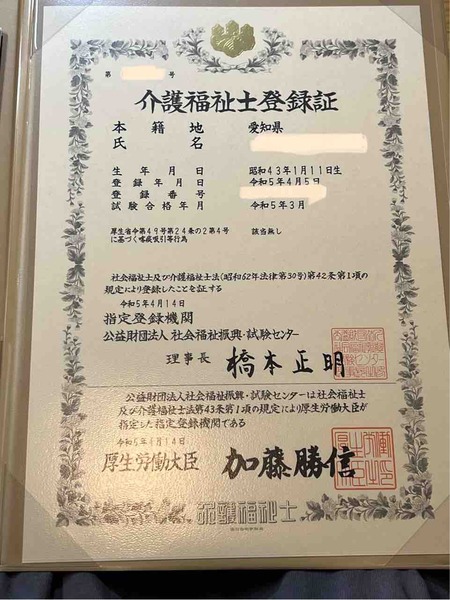 第 号
介護福祉士登録証
本籍地 愛知県
氏名
生年月日 昭和43年1月11日生
登録年月日 令和5年4月5日
登録番号
試験合格年月 令和5年3月
厚生省令第49号第24条の2第4号 該当無し
に基づく喀痰吸引等行為
社会福祉士及び介護福祉士法(昭和62年法律第30号)第42条第1項の
規定により登録したことを証する
令和5年4月14日
指定登録機関
公益財団法人 社会福祉振興・試験センター
理事長 橋本正明
公益財団法人社会福祉振興・試験センターは社会福祉士
及び介護福祉士法第43条第1項の規定により厚生労働大臣が
指定した指定登録機関である
令和5年4月14日
厚生労働大臣 加藤勝信
介護福祉士